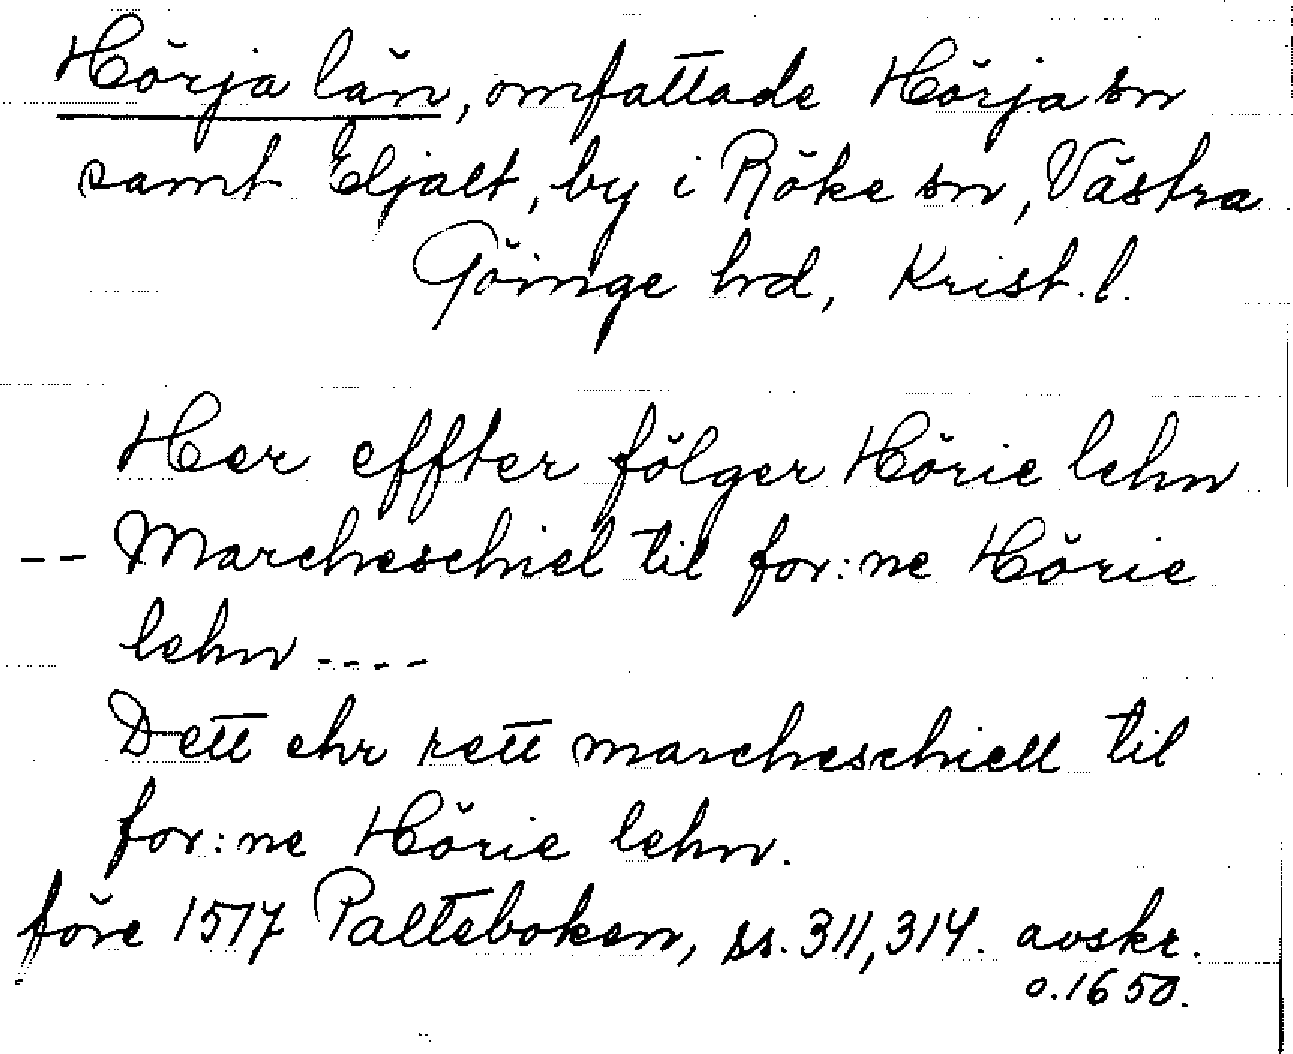 Hörja län, omfattade Hörja sn
samt Eljalt, by i Röke sn, Västra
Göinge hrd, Krist. l.
Her effter fölger Hörie lehn
-- Marcheschiel til for:ne Hörie
lehn ----
Dett ehr rett marcheschiell til
for:ne Hörie lehn.
före 1517 Palteboken, ss. 311, 314. avskr.
o. 1650.